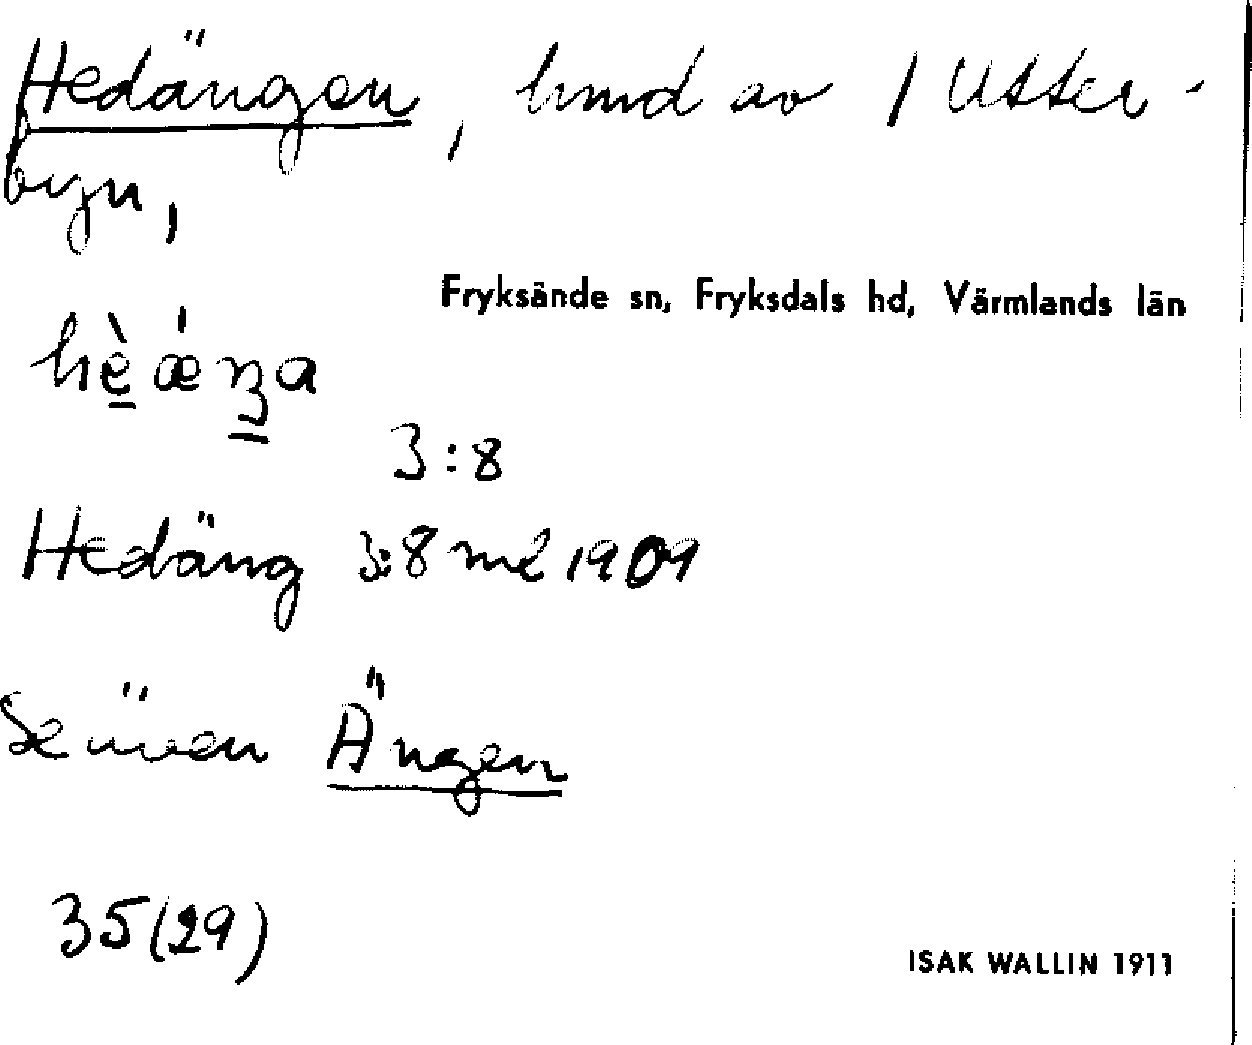 Hedängen, hmd av / Utter-
byn,
Fryksände sn, Fryksdals hd, Värmlands län
hè ǽŋa
3:8
Hedäng 3:8 ml 1909
Se även Ängen
35(29)
ISAK WALLIN 1911